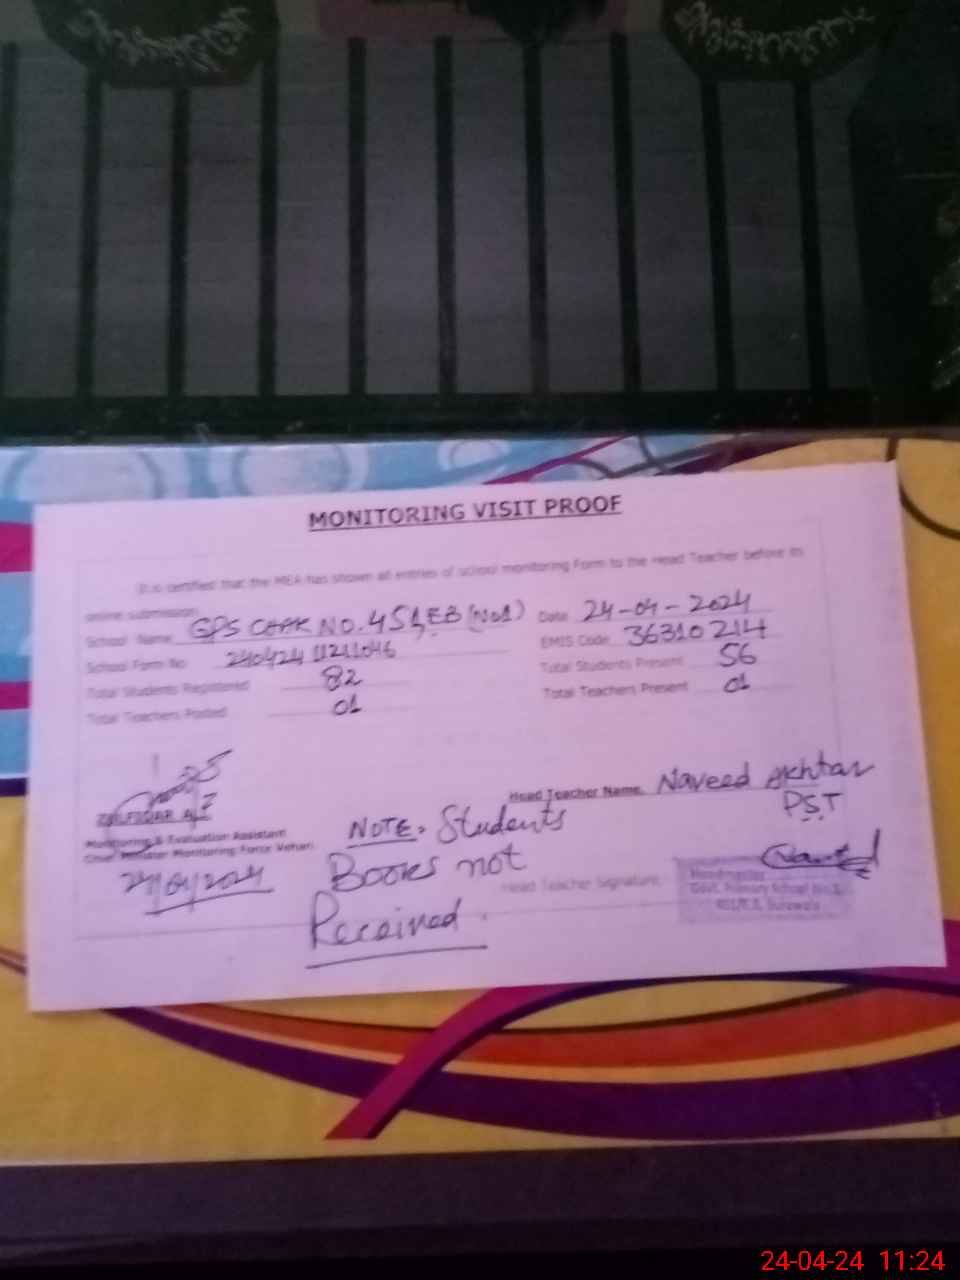 MONITORING VISIT PROOF
It is certified that the MEA has shown all entries of school monitoring Form to the Head Teacher before its
online submission.
School Name GPS CHAK NO. 451EB (No1) Date 24-04-2024
School Form No 24042411211046 EMIS Code 36310214
Total Students Registered 82 Total Students Present 56
Total Teachers Posted 01 Total Teachers Present 01
Head Teacher Name Naveed Akhtar
PST
ZULFIQAR ALI
Monitoring & Evaluation Assistant
Chief Minister Monitoring Force Vehari.
24/04/2024
NOTE: Students
Books not
Received.
Head Teacher Signature
Headmaster
Govt. Primary School No.1
451/E.B,
24-04-24 11:24